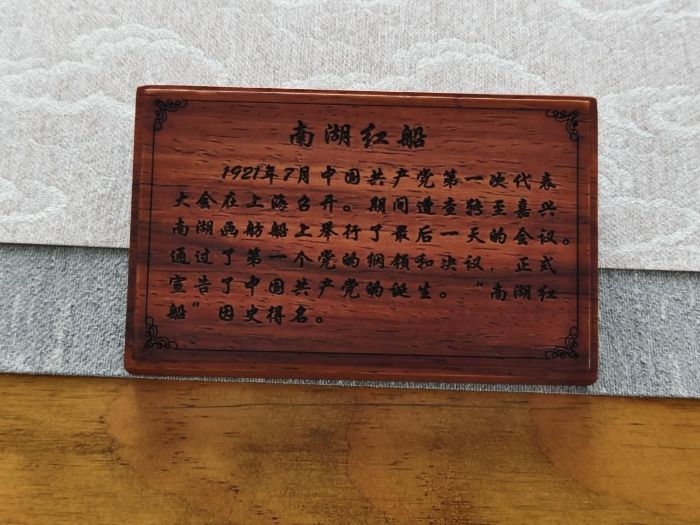 南湖红船
1921年7月中国共产党第一次代表
大会在上海召开。期间遭查转至嘉兴
南湖画舫船上举行了最后一天的会议。
通过了第一个党的纲领和决议，正式
宣告了中国共产党的诞生。“南湖红
船”因史得名。